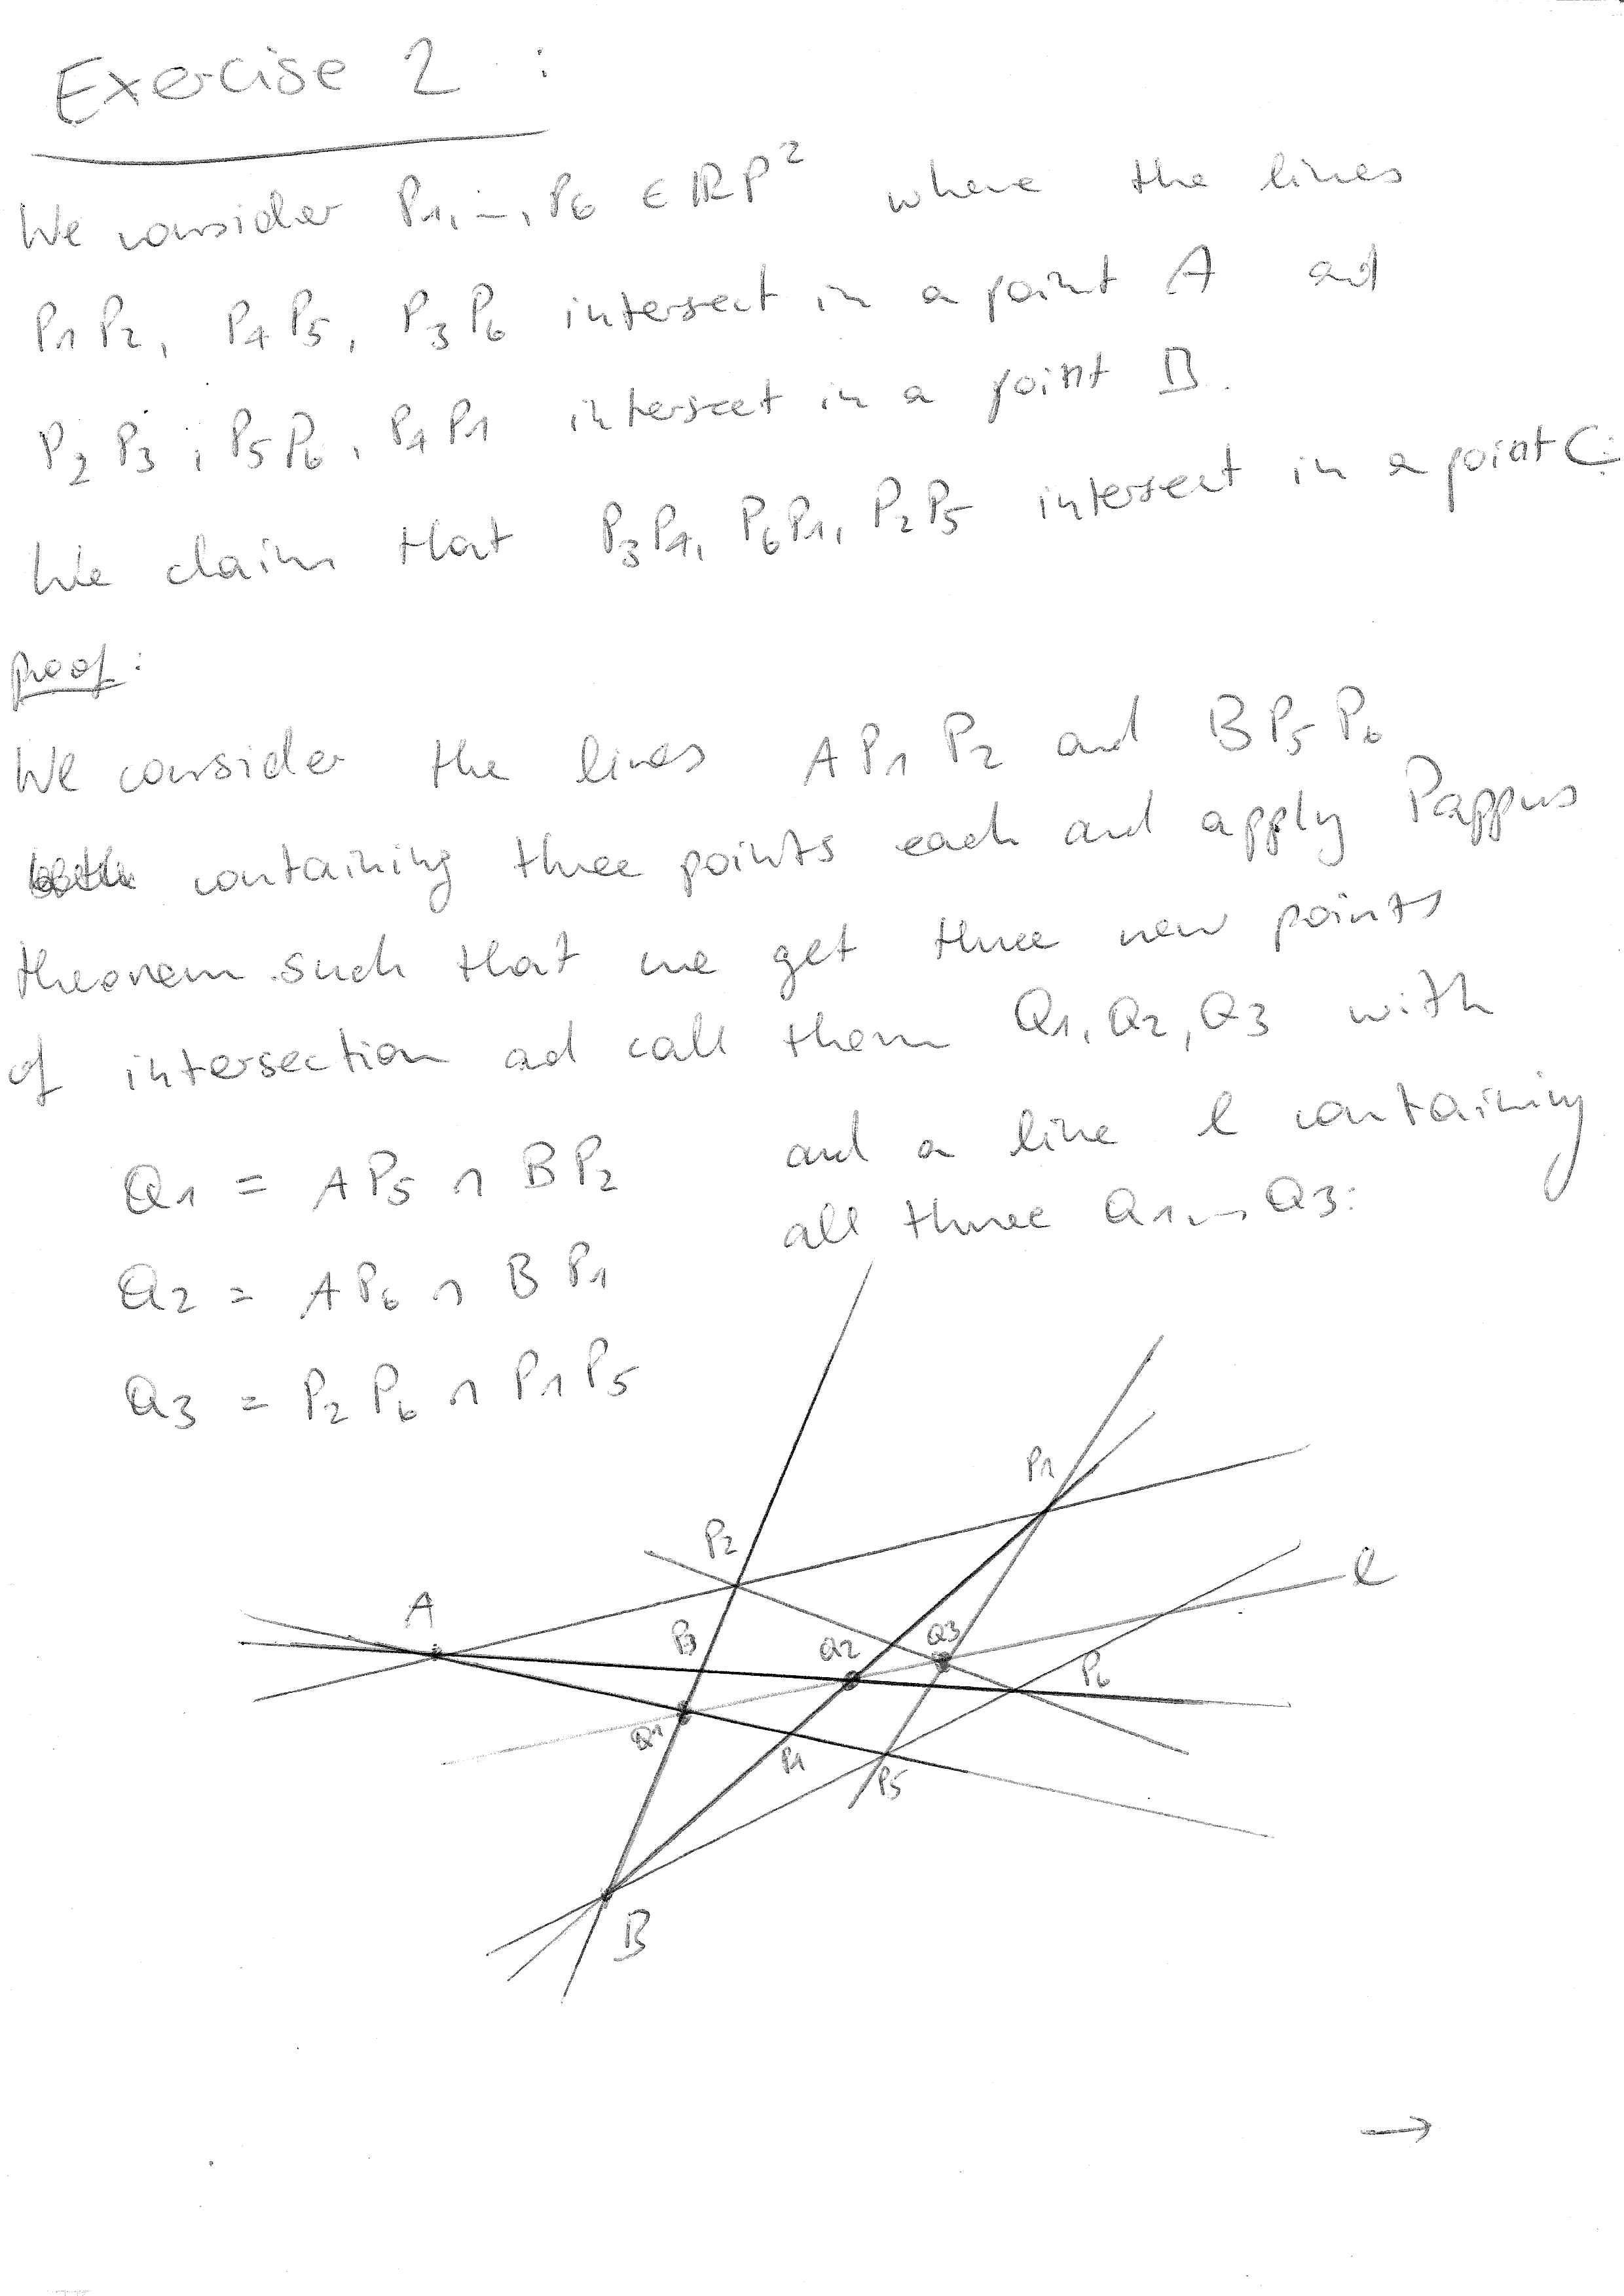 Exercise 2 :
We consider P1, ..., P6 ∈ RP² where the lines
P1P2, P4P5, P3P6 intersect in a point A ad
P2P3, P5P6, P4P1 intersect in a point B.
We claim that P3P4, P6P1, P2P5 intersect in a point C.
proof:
We consider the lines AP1P2 and BP5P6
containing three points each and apply Pappus
theorem such that we get three new points
of intersection ad call them Q1, Q2, Q3 with
Q1 = AP5 ∩ BP2 and a line l containing
all three Q1, ..., Q3:
Q2 = AP6 ∩ BP1
Q3 = P2P6 ∩ P1P5
P1
P2
l
A
P3
Q2
Q3
P6
Q1
P4
P5
B
→